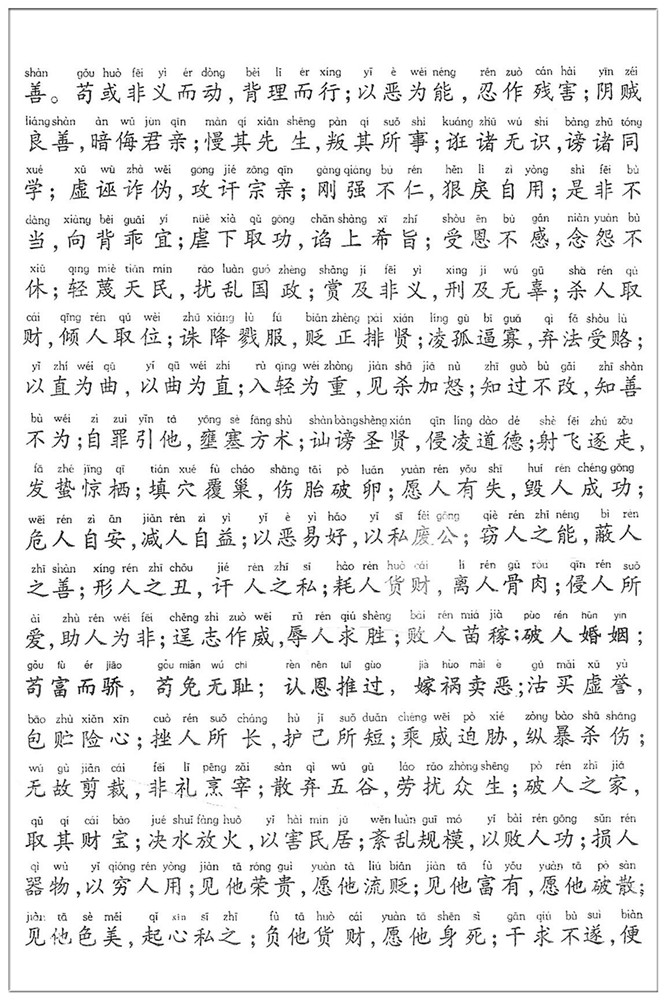 shàn gǒu huò fēi yì ér dòng bèi lǐ ér xíng yǐ è wéi néng rěn zuò cán hài yīn zéi
善。苟或非义而动,背理而行;以恶为能,忍作残害;阴贼
liáng shàn àn wǔ jūn qīn màn qí xiān shēng pàn qí suǒ shì kuáng zhū wú shí bàng zhū tóng
良善,暗侮君亲;慢其先生,叛其所事;诳诸无识,谤诸同
xué xū wū zhà wěi gōng jié zōng qīn gāng qiáng bù rén hěn lì zì yòng shì fēi bù
学;虚诬诈伪,攻讦宗亲;刚强不仁,狠戾自用;是非不
dàng xiàng bèi guāi yí nüè xià qǔ gōng chǎn shàng xī zhǐ shòu ēn bù gǎn niàn yuàn bù
当,向背乖宜;虐下取功,谄上希旨;受恩不感,念怨不
xiū qīng miè tiān mín rǎo luàn guó zhèng shǎng jí fēi yì xíng jí wú gū shā rén qǔ
休;轻蔑天民,扰乱国政;赏及非义,刑及无辜;杀人取
cái qīng rén qǔ wèi zhū xiáng lù fú biǎn zhèng pái xián líng gū bī guǎ qì fǎ shòu lù
财,倾人取位;诛降戮服,贬正排贤;凌孤逼寡,弃法受赂;
yǐ zhí wéi qū yǐ qū wéi zhí rù qīng wéi zhòng jiàn shā jiā nù zhī guò bù gǎi zhī shàn
以直为曲,以曲为直;入轻为重,见杀加怒;知过不改,知善
bù wéi zì zuì yǐn tā yōng sè fāng shù shàn bàng shèng xián qīn líng dào dé shè fēi zhú zǒu
不为;自罪引他,壅塞方术;讪谤圣贤,侵凌道德;射飞逐走,
fā zhé jīng qī tián xué fù cháo shāng tāi pò luǎn yuàn rén yǒu shī huǐ rén chéng gōng
发蛰惊栖;填穴覆巢,伤胎破卵;愿人有失,毁人成功;
wēi rén zì ān jiǎn rén zì yì yǐ è yì hǎo yǐ sī fèi gōng qiè rén zhī néng bì rén
危人自安,减人自益;以恶易好,以私废公;窃人之能,蔽人
zhī shàn xíng rén zhī chǒu jié rén zhī sī hào rén huò cái lí rén gǔ ròu qīn rén suǒ
之善;形人之丑,讦人之私;耗人货财,离人骨肉;侵人所
ài zhù rén wéi fēi chěng zhì zuò wēi rǔ rén qiú shèng bài rén miáo jià pòo rén hūn yīn
爱,助人为非;逞志作威,辱人求胜;败人苗稼;破人婚姻;
gǒu fù ér jiāo gǒu miǎn wú chǐ rèn ēn tuī guò jià huò mài è gū mǎi xū yù
苟富而骄,苟免无耻;认恩推过,嫁祸卖恶;沽买虚誉,
bāo zhù xiǎn xīn cuò rén suǒ cháng hù jǐ suǒ duǎn chéng wēi pò xié zòng bào shā shāng
包贮险心;挫人所长,护己所短;乘威迫胁,纵暴杀伤;
wú gù jiǎn cái fēi lǐ pēng zǎi sàn qì wǔ gǔ láo rǎo zhòng shēng pò rén zhī jiā
无故剪裁,非礼烹宰;散弃五谷,劳扰众生;破人之家,
qǔ qí cái bǎo jué shuǐ fàng huǒ yǐ hài mín jū wěn luàn guī mó yǐ bài rén gōng sǔn rén
取其财宝;决水放火,以害民居;紊乱规模,以败人功;损人
qì wù yǐ qióng rén yòng jiàn tā róng guì yuàn tā liú biǎn jiàn tā fù yǒu yuàn tā pò sàn
器物,以穷人用;见他荣贵,愿他流贬;见他富有,愿他破散;
jiàn tā sè měi qǐ xīn sī zhī fù tā huò cái yuàn tā shēn sǐ gān qiú bù suì biàn
见他色美,起心私之;负他货财,愿他身死;干求不遂,便